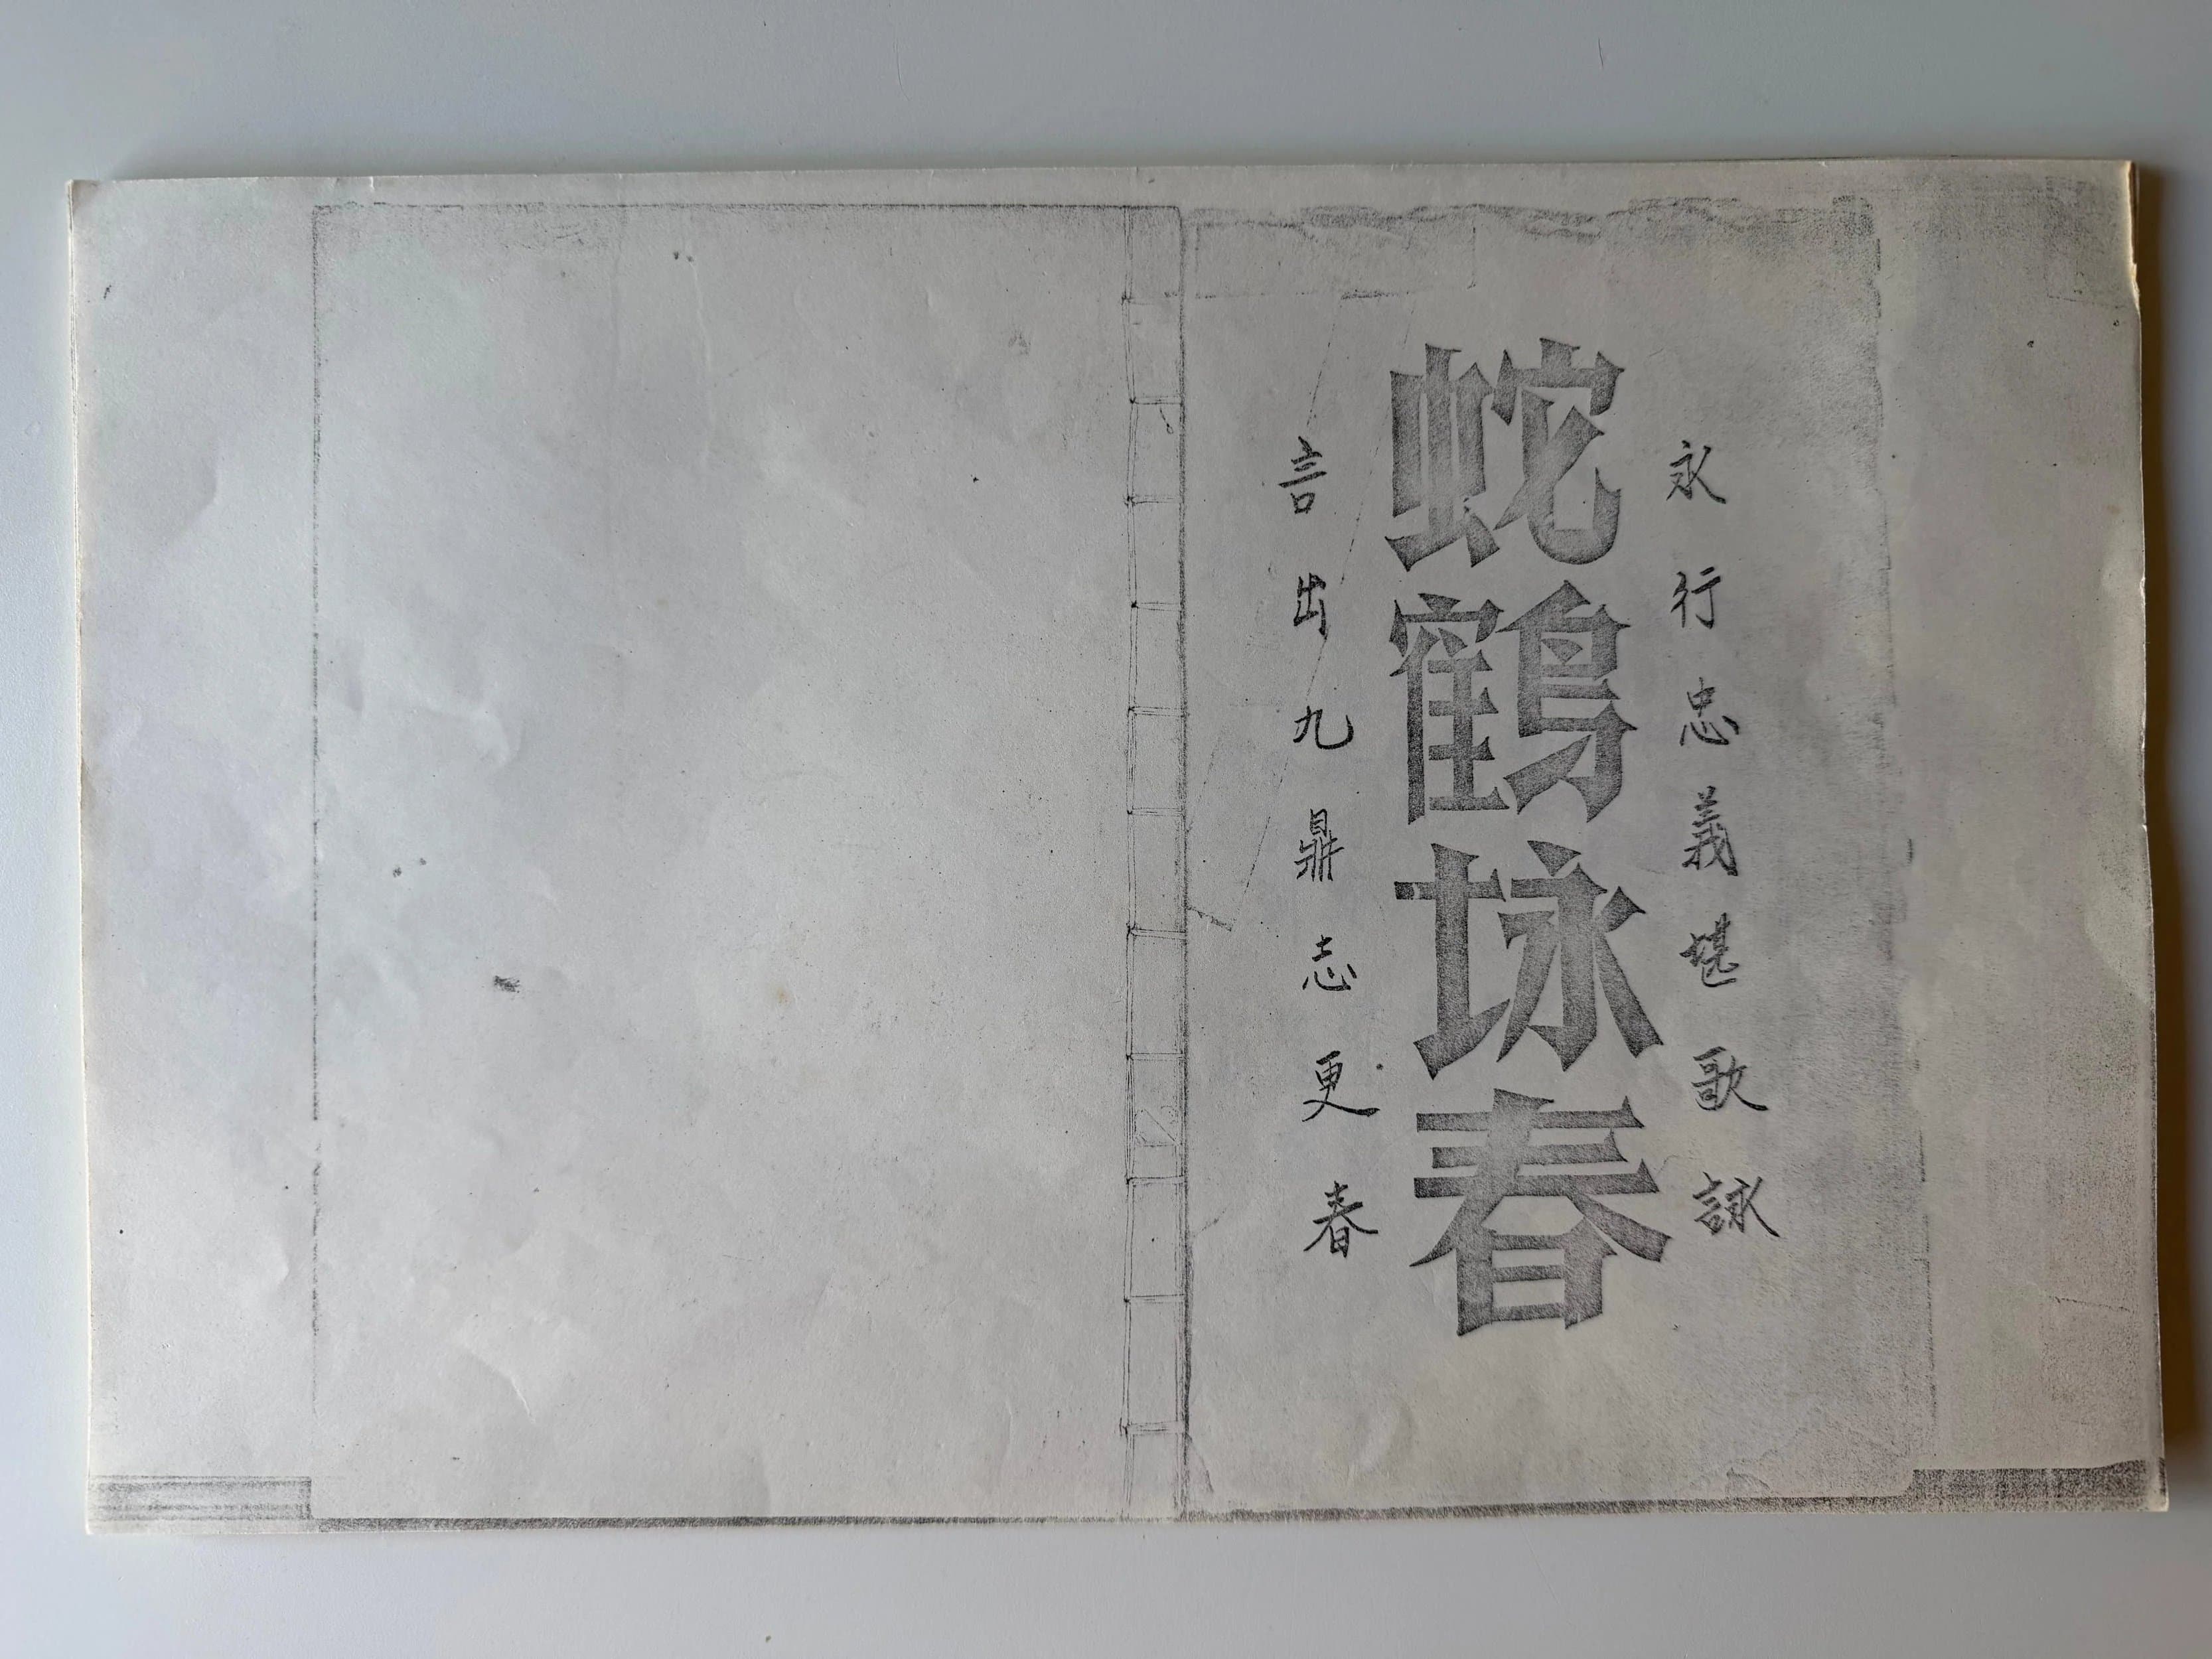 永行忠義堪歌詠
蛇鶴春
言出九鼎志更春